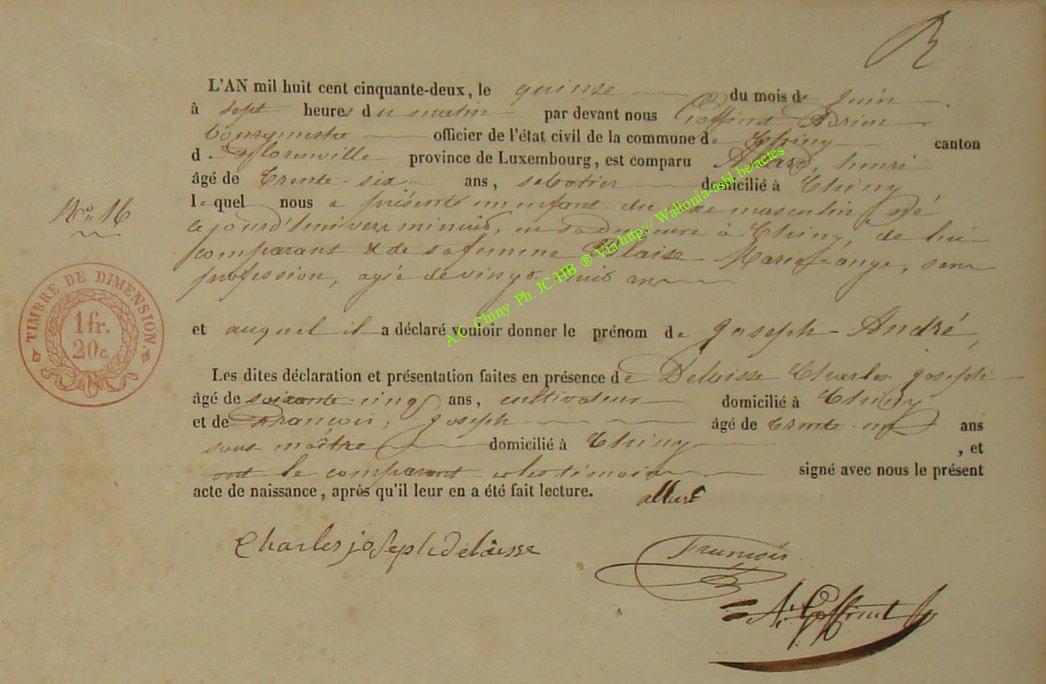 L'AN mil huit cent cinquante-deux, le quinze du mois de Juin
à sept heures du matin par devant nous Goffinet Adrien
bourgmestre officier de l'état civil de la commune de Chiny canton
de Florenville province de Luxembourg, est comparu henri
âgé de trente six ans, sabotier domicilié à Chiny
lequel nous a présenté un enfant du sexe masculin né
N° 16
ce jourd'hui vers minuit, en sa demeure à Chiny, de lui
comparant & de sa femme Blaise Marie-ange, sans
profession, agée de vingt huit ans
TIMBRE DE DIMENSION
1 fr.
20 c.
et auquel il a déclaré vouloir donner le prénom de Joseph André,
Les dites déclaration et présentation faites en présence de Delaisse Charles Joseph
âgé de soixante cinq ans, cultivateur domicilié à Chiny
et de François, Joseph âgé de trente ans
sous maître domicilié à Chiny, et
ont le comparant et les témoins signé avec nous le présent
acte de naissance, après qu'il leur en a été fait lecture.
Charles joseph delaisse
François
A. Goffinet
A.C. Chiny Ph. JC/HB ® Via http:// Wallonia-asbl.be/actes